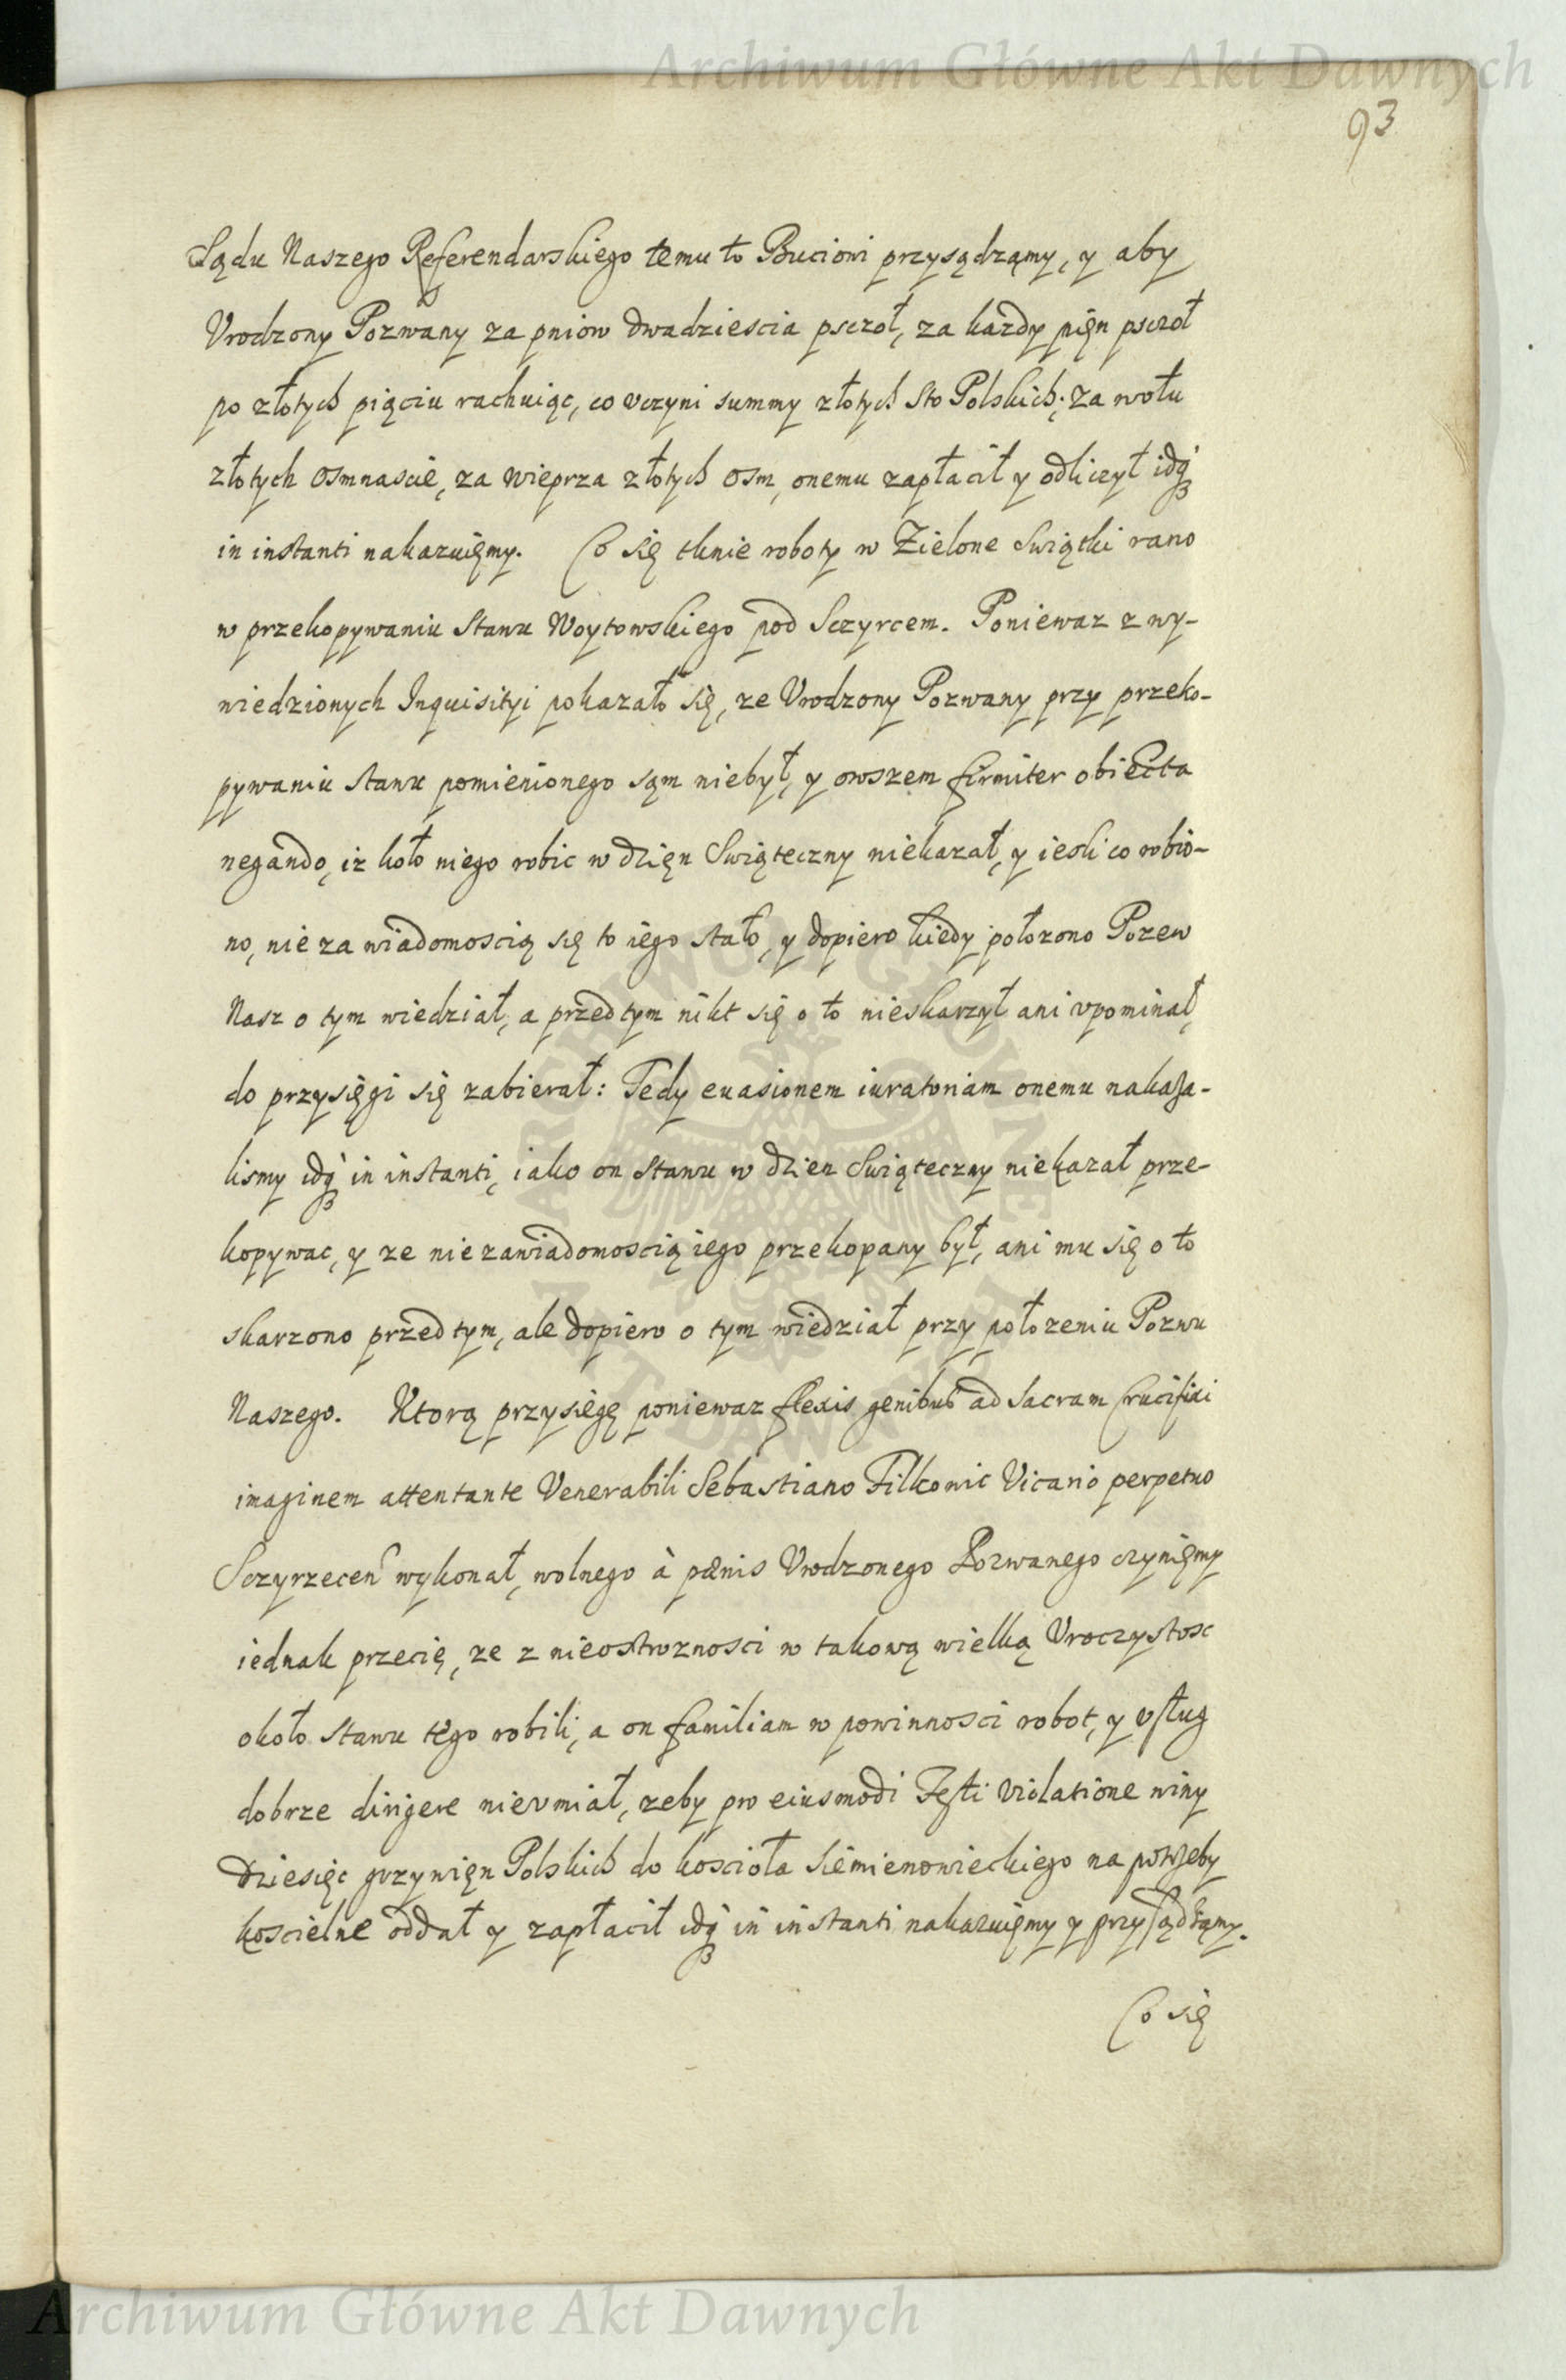 Archiwum Główne Akt Dawnych
93
Sądu Naszego Referendarskiego temu to Buciowi przysądząmy, y aby
Vrodzony Pozwany za pniow dwadziescia psczoł, za kazdy pięn psczoł
po złotych piąciu rachuiąc, co vczyni summy złotych sto Polskich; za wołu
złotych osmnascie, za wieprza złotych osm, onemu zapłacił y odliczył idq
in instanti nakazuięmy. Co się tknie roboty w Zielone Swiątki rano
w przekopywaniu stawu Woytowskiego pod Sczyrcem. Poniewaz z wy-
wiedzionych Inquisityi pokazało się, ze Vrodzony Pozwany przy przeko-
pywaniu stawu pomienionego sąm niebył, y owszem firmiter obiecta
negando, iz koło niego robic w dzięn Swiąteczny niekazał, y iesli co robio-
no, nie za wiadomoscią się to iego stało, y dopiero kiedy połozono Pozew
Nasz o tym wiedział, a przed tym nikt się o to nieskarzył ani vpominał,
do przysięgi się zabierał: Tedy euasionem iuratoriam onemu nakaza-
lismy idq in instanti, iako on stawu w dzien Swiąteczny niekazał prze-
kopywac, y ze nie zawiadomoscią iego przekopany był, ani mu się o to
skarzono przed tym, ale dopiero o tym wiedział przy połozeniu Pozwu
Naszego. Ktorą przysięgę poniewaz flexis genibus ad Sacram Crucifixi
imaginem attentante Venerabili Sebastiano Filkowic Vicario perpetuo
Sczyrzecen wykonał, wolnego à pœnis Vrodzonego Pozwanego czynięmy
iednak przecię, ze z nieostroznosci w takową wielką Vroczystosc
około stawu tego robili, a on familiam w powinnosci robot, y vsług
dobrze dirigere nievmiał, zeby pro eiusmodi Festi violatione winy
Dziesięc grzywięn Polskich do koscioła Siemienowieckiego na potrzeby
koscielne oddał y zapłacił idq in instanti nakazuięmy y przysądząmy.
Co się
Archiwum Główne Akt Dawnych